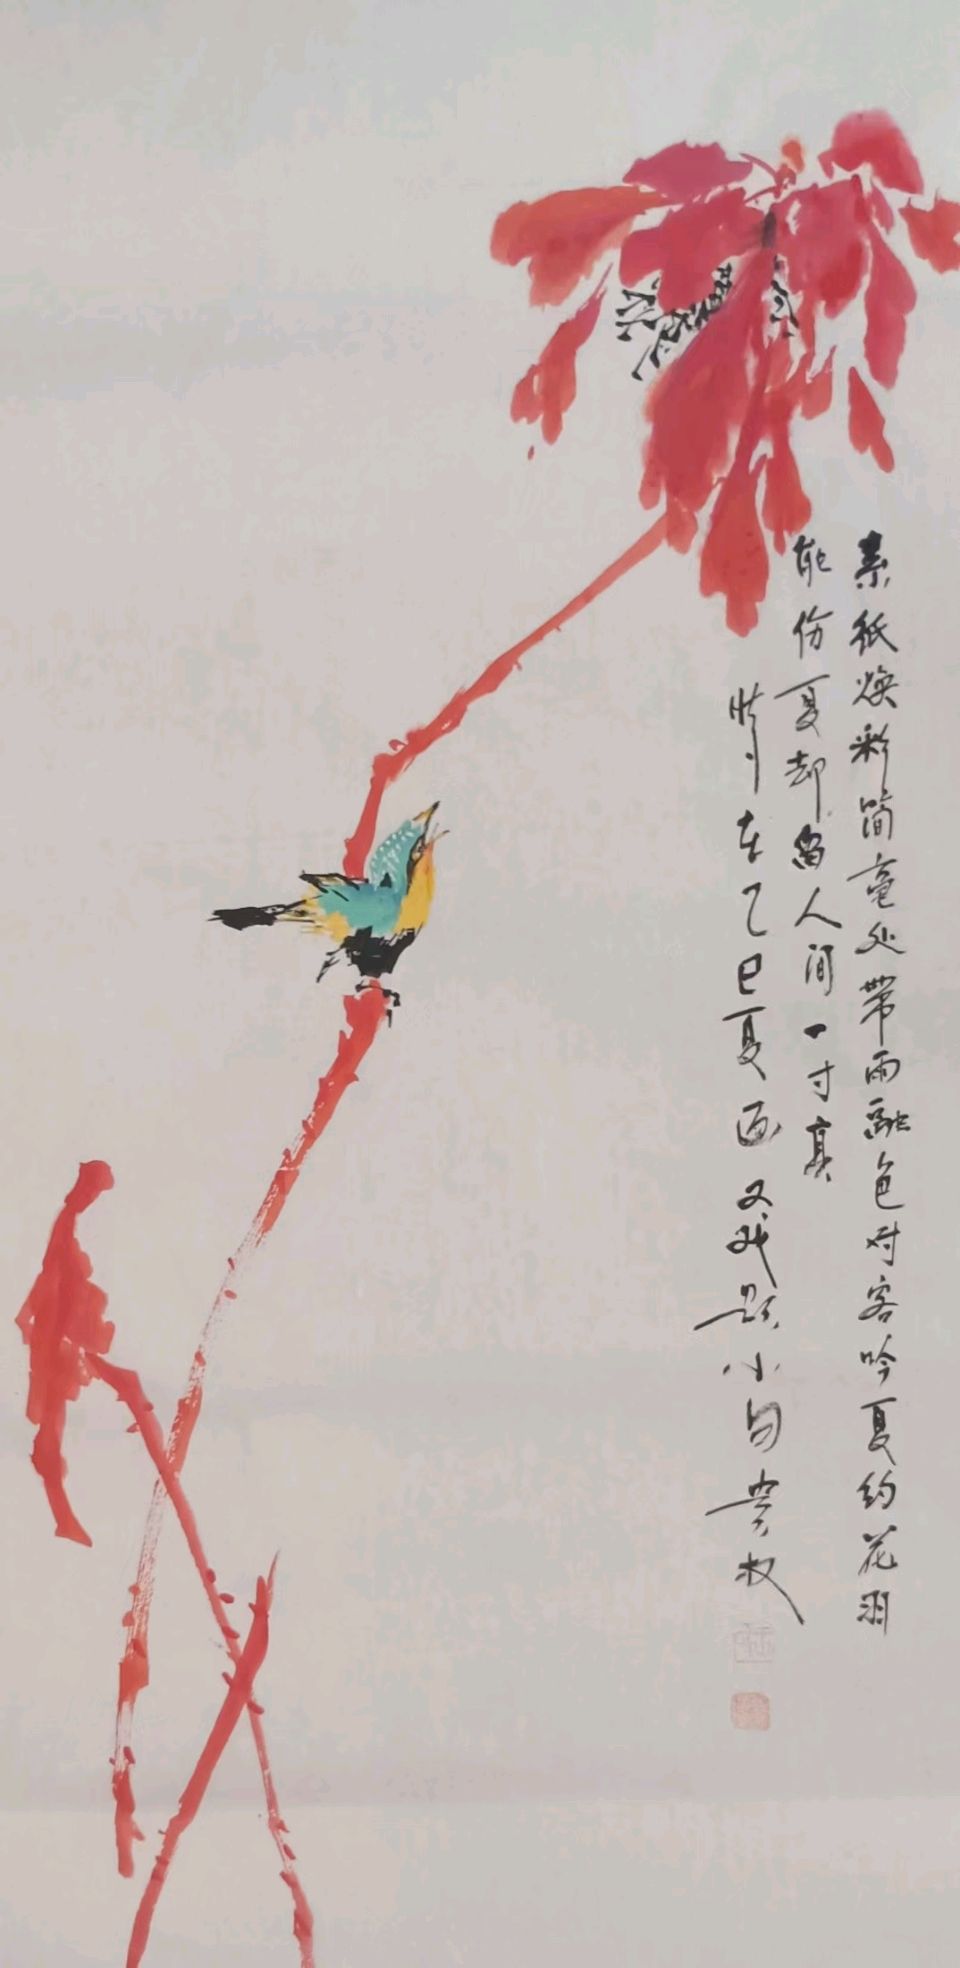 素纸焕彩简毫处带雨融色对客吟夏约花羽
能份夏却留人间一寸真
时在乙巳夏画又戏题小句贵权